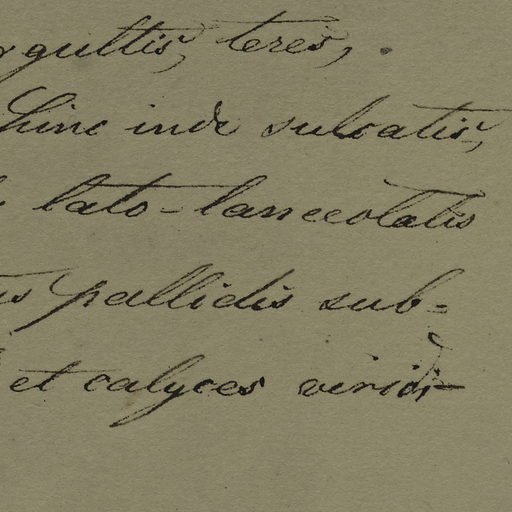 rgultis, teres,
hinc inde sulcatis,
lato-lanceolatis
is pallidis sub-
et calyces viridi-